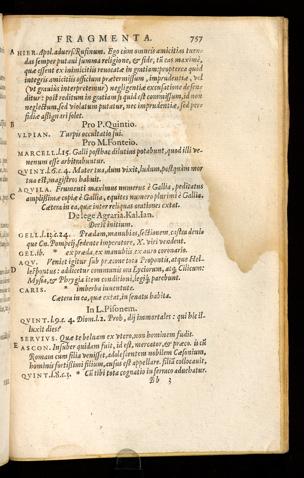 FRAGMENTA. 757
A HIER. Apol. advers. Rufinum. Ego cùm omneis amicitias tuendas semper putavi summa religione, & fide, tũ eas maximè,
quæ essent ex inimicitiis revocatæ in gratiam: propterea quòd
integris amicitiis officium prætermissum, imprudentiæ, vel
(ut gravius interpretemur) negligentiæ excusatione defenditur: post reditum in gratiam si quid est commissum, id non
neglectum, sed violatum putatur, nec imprudentiæ, sed perfidiæ assignari solet.
B Pro P. Quintio.
VLPIAN. Turpis occultatio sui.
Pro M. Fonteio.
MARCELL. l. 15. Galli posthac dilutius potabunt, quod illi venenum esse arbitrabuntur.
QVINT. l. 6. c. 4. Mater tua, dum vixit, ludum, postquam mortua est, magistros habuit.
AQVILA. Frumenti maximus numerus è Gallia, peditatus
C amplissimæ copiæ è Gallia, equites numero plurimi è Gallia.
Cætera in ea, quæ inter reliquas autores extat.
De lege Agraria. Kal. Ian.
Deest initium.
GELL. l. 13. c. 24. Prædam, manubias, sectionem, castra denique Cn. Pompeij, sedente imperatore, X. viri vendent.
GEL. ib. * ex præda, ex manubiis ex auro coronario.
AQV. Veniet igitur sub præcone tota Propontis, atque HelD lespontus: addicetur communis ora Lyciorum, atq; Cilicum:
Mysia, & Phrygia item conditioni, legiq; parebunt.
CARIS. * imberba iuventute.
Cætera in ea, quæ extat, in senatu habita.
In L. Pisonem.
QVINT. l. 9. c. 4. Diom. l. 2. Prob, dij immortales: qui hic illuxit dies?
SERVIVS. Quæ te beluam ex utero, non hominem fudit.
ASCON. Insuber quidam fuit, id est, mercator, & præco. is cũ
Romam cum filia venisset, adolescentem nobilem Cæsonium,
hominis fortissimi filium, ausus est appellare. filiã collocavit,
QVINT. l. 8. c. 3. * Cũ tibi tota cognatio in serraco aduehatur.
Bb 3